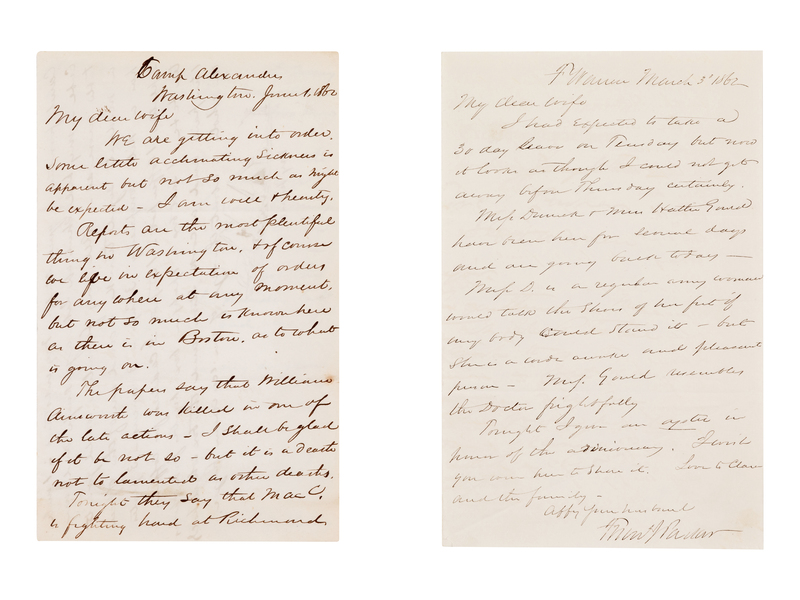 Camp Alexandria
Washington. June 1. 1862
My dear wife
We are getting into order.
Some little acclimating Sickness is
apparent but not so much as might
be expected - I am well & hearty.
Reports are the most plentiful
thing in Washington, & of course
we live in expectation of orders
for any where at any moment,
but not so much is known here
as there is in Boston, as to what
is going on.
The papers say that William
Ainsworth was killed in one of
the late actions - I shall be glad
if it be not so - but it is a death
not to lamented as other deaths.
Tonight they say that Mac C.
is fighting hard at Richmond
Ft Warren March 3d 1862
My dear wife
I had expected to take a
30 day leave on Tuesday but now
it looks as though I could not get
away before Thursday certainly.
Miss & Miss Hattie Gould
have been here for several days
and are going back to day -
Miss D. is a regular army woman
would talk the Shoes off her feet if
any body could Stand it - but
She is a wide awake and pleasant
person - Miss. Gould resembles
the Doctor frightfully
Tonight I give an oyster in
honor of the anniversary. I wish
you were here to Share it. Love to Clara
and the family -
Affy your husband